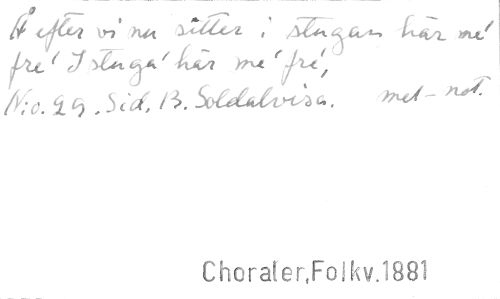 Å efter vi nu sitter i stugan här mé
fré I stuga' här mé fré,
N:o. 29. Sid. 13. Soldatvisa. met-not.
Choraler,Folkv.1881